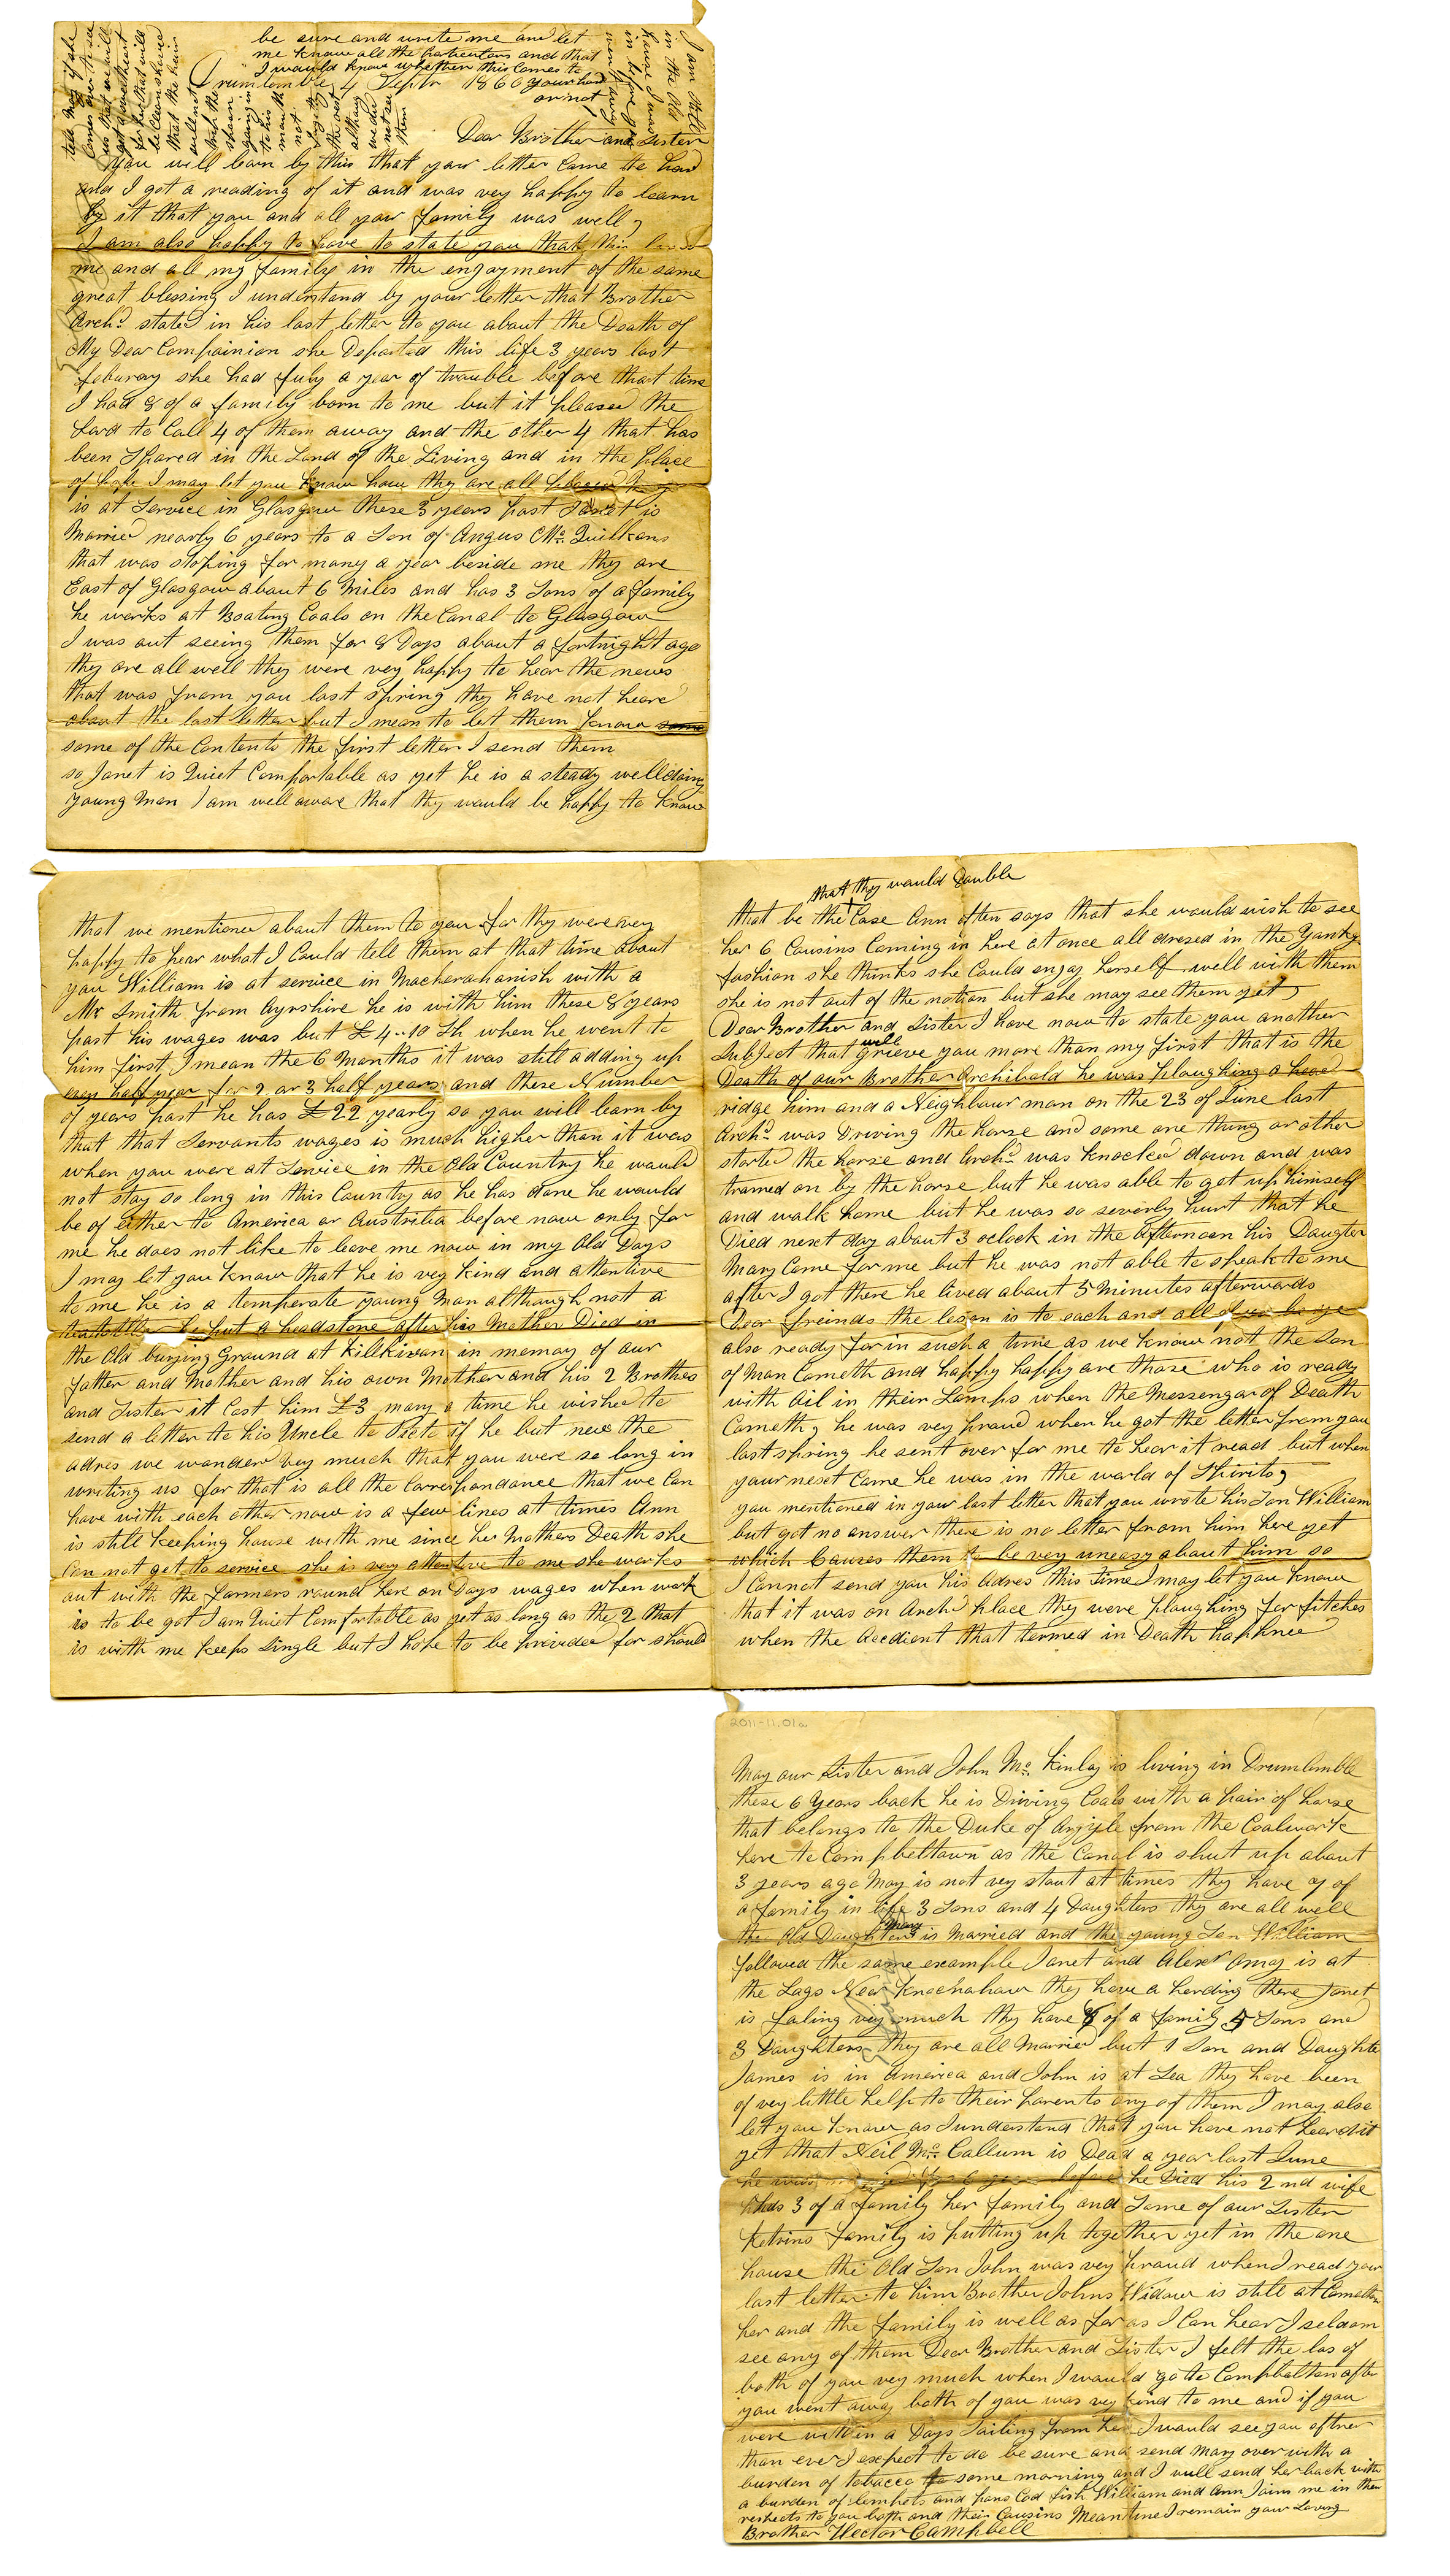 be sure and write me and let
me know all the particulars and that
I would know whether this comes to
your hand
or not
Drumlemble 4 Septr 1860
I am still
in the old
house I was
in before
tell Mary if she
comes over to see
us that we will
get a sweetheart
for her that will
be clean shaved
that the hair
will not
keep the
going in
to his
mouth
not
the rest
altho
we do
not see
them
Dear Brother and Sister
you will learn by this that your letter Came to hand
and I got a reading of it and was vey happy to learn
by it that you and all your family was well,
I am also happy to have to state you that this leaves
me and all my family in the engoyment of the same
great blessing I understand by your letter that Brother
Archd stated in his last letter to you about the Death of
My Dear Compainion she Departed this life 3 years last
feburay she had fuly a year of trouble before that time
I had 8 of a family born to me but it pleased the
Lord to Call 4 of them away and the other 4 that has
been Spared in the Land of the Living and in the place
of hope I may let you know how thy are all
is at Service in Glasgow these 3 years past Janet is
Married nearly 6 years to a Son of Angus Mc Quilkans
that was stoping for many a year beside me thy are
East of Glasgow about 6 Miles and has 3 Sons of a family
he works at Boating Coals on the Canal to Glasgow
I was out seeing them for 8 Days about a fortnight ago
thy are all well they were vey happy to hear the news
that was from you last spring thy have not heard
about the last letter but I mean to let them know some
some of the Contents the first letter I send them
so Janet is Quiet Comfortable as yet he is a steady welldoing
young Man I am well aware that thy would be happy to know
that we mentioned about them to you for thy were vey
happy to hear what I Could tell them at that time about
you William is at service in Macherahanish with a
Mr Smith from Ayrshire he is with him these 8 years
past his wages was but £4-10 Sh when he went to
him first I mean the 6 Months it was still adding up
evey half year for 2 or 3 half years and these Number
of years past he has £22 yearly so you will learn by
that that Servants wages is much higher than it was
when you were at Service in the Old Country he would
not stay so long in this Country as he has done he would
be of either to America or Austrilia before now only for
me he does not like to leave me now in my Old Days
I may let you know that he is vey kind and attentive
to me he is a temperate young Man although not a
teatotller he put a headstone after his Mother Died in
the Old burying Ground at Killkivan in memoy of our
father and Mother and his own Mother and his 2 Brothes
and Sister it Cost him £3 many a time he wished to
send a letter to his Uncle to Picto if he but new the
adres we wonder vey much that you were so long in
writing us for that is all the Correspondance that we Can
have with each other now is a few lines at times Ann
is still keeping house with me since her Mothers Death she
Can not get to service she is very attentive to me she works
out with the farmers round here on Days wages when work
is to be got I am Quiet Comfortable as yet as long as the 2 that
is with me keeps Single but I hope to be provided for should
that thy would Double
that be the Case Ann often says that she would wish to see
her 6 Cousins Coming in here at once all dresed in the Yanky
fashion she thinks she Could engoy herself well with them
she is not out of the notion but she may see them yet,
Dear Brother and Sister I have now to state you another
will
Subject that grieve you more than my first that is the
Death of our Brother Archibald he was ploughing a head
ridge him and a Neighbour man on the 23 of June last
Archd was Driving the horse and some one thing or other
started the horse and Archd was knocked down and was
tramed on by the horse but he was able to get up himself
and walk home but he was so severly hurt that he
Died next day about 3 oclock in the afternoon his Daugter
Mary Came for me but he was not able to speak to me
after I got there he lived about 5 Minutes afterwards
Dear freinds the leson is to each and all of us be ye
also ready for in such a time as we know not the Son
of Man Cometh and happy happy are those who is ready
with Oil in their Lamps when the Messengar of Death
Cometh, he was vey proud when he got the letter from you
last spring he sent over for me to hear it read but when
your next Came he was in the world of Spirits,
you mentioned in your last letter that you wrote his Son William
but got no answer there is no letter from him here yet
which Causes them to be vey uneasy about him so
I Cannot send you his Adres this time I may let you know
that it was on Archd place they were ploughing for fitches
when the Accedient that termed in Death hapned
2011-11.01a
May our Sister and John Mc Kinlay is living in Drumlemble
these 6 Years back he is Driving Coals with a pair of horse
that belongs to the Duke of Argyle from the Coalwork
here to Campbeltown as the Canal is shut up about
3 years ago May is not vey stout at times thy have 7 of
a family in life 3 Sons and 4 Daughters thy are all well
Mary
the Old Daughter is Married and the young Son William
followed the same example Janet and Alexr Omay is at
the Lags Near Knocnahaw they have a herding there Janet
is faling vey much thy have 8 of a family 5 Sons and
3 Daughters they are all Married but 1 Son and Daughter
James is in America and John is at Sea thy have been
of vey little help to their parents any of them I may also
let you know as I understand that you have not heard it
yet that Neil Mc Callum is Dead a year last June
he was before he Died his 2nd wife
has 3 of a family her family and Some of our Sister
Ketrins family is putting up together yet in the one
house the Old Son John was vey proud when I read your
last letter to him Brother Johns Widow is still at
her and the family is well as far as I Can hear I seldom
see any of them Dear Brother and Sister I felt the los of
both of you vey much when I would go to Campbelton after
you went away both of you was vey kind to me and if you
were within a Days Sailing from her I would see you oftner
than ever I expect to do be sure and send Mary over with a
burden of tobacco some morning and I will send her back with
a burden of lempets and Cod fish William and Ann Joins me in their
respects to you both and their Cousins Meantime I remain your Loving
Brother Hector Campbell